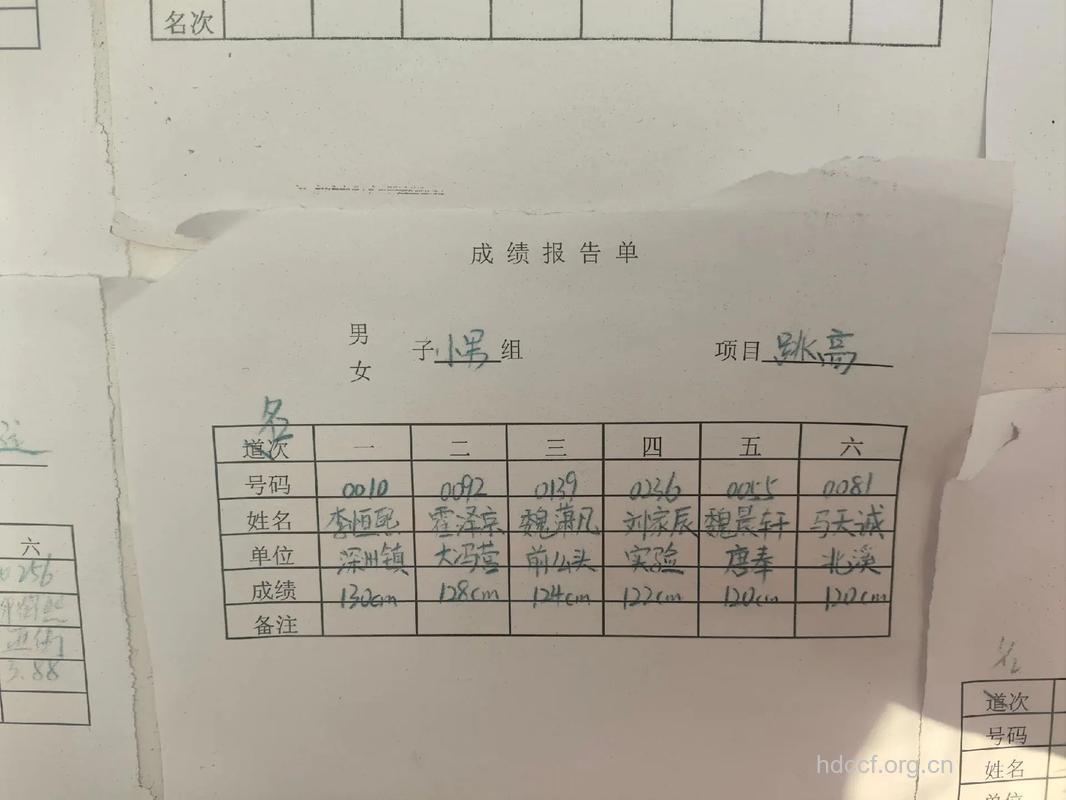 名次
成绩报告单
男
女
子 小男 组 项目 跳高
名
道次 一 二 三 四 五 六
号码 0010 0092 0139 0236 0055 0081
姓名 李恒 霍泽京 魏萧凡 刘家辰 魏晨轩 马天诚
单位 深州镇 大冯营 前么头 实验 唐奉 北溪
成绩 130cm 128cm 124cm 122cm 120cm 120cm
备注
六
256
3.88
名
道次
号码
姓名
单位
hdccf.org.cn